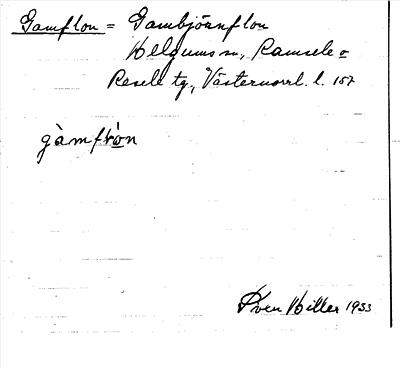 Gamflon = Gambjörnflon
Helgums sn, Ramsele o
Resele tg., Västernorrl. l. 157
gàmflòn
Sven Hiller 1933